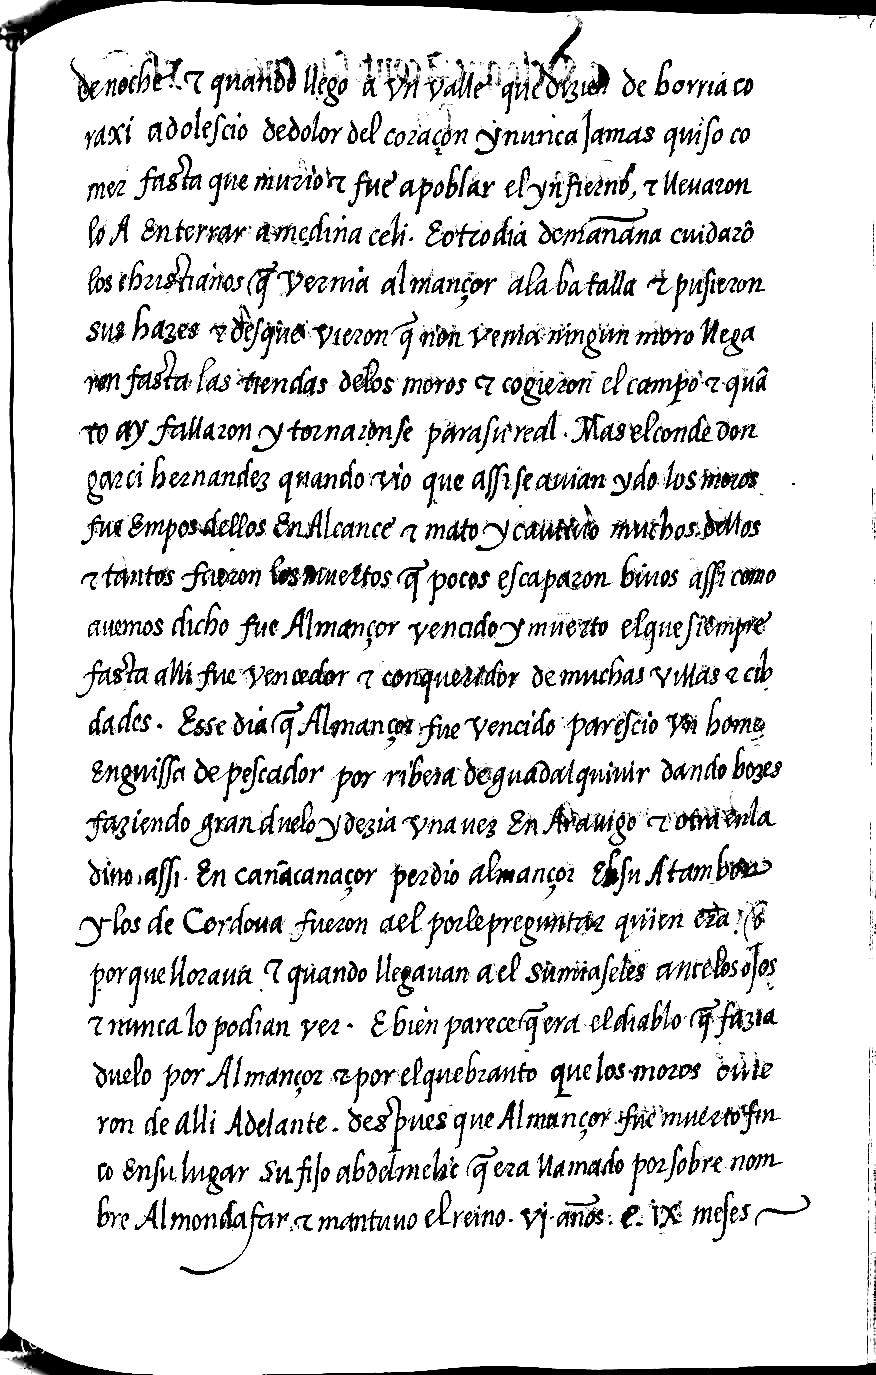 de noche. τ quando llego a vn valle que dizien de borria co
raxi adolescio dedolor del coraçon y nunca Jamas quiso co
mer fasta que murio τ fue apoblar el ynfierno, τ lleuaron
lo A Enterrar a medina celi. E otro dia demañana cuidarō
los christianos q̃ vernia almançor ala batalla τ pusieron
sus hazes τ desque vieron q̃ non venia ningun moro llega
ron fasta las tiendas delos moros τ cogieron el campo τ quā
to ay fallaron y tornaronse parasu real. Mas el conde don
garci hernandez quando vio que assi se auian ydo los moros
fue Empos dellos En Alcance τ mato y cautiuo muchos dellos
τ tantos fueron los muertos q̃ pocos escaparon biuos assi como
auemos dicho fue Almançor vencido y muerto el que siempre
fasta alli fue vencedor τ conqueredor de muchas villas τ cib
dades. Esse dia q̃ Almançor fue vencido parescio vn home
Enguissa de pescador por ribera de guadalquiuir dando bozes
faziendo gran duelo y dezia vna vez En Arauigo τ otra en la
dino assi. En cañacanaçor perdio almançor El su Atambor
y los de Cordoua fueron a el porle preguntar quien era
por que lloraua τ quando llegauan a el sumiaseles ante los oJos
τ nunca lo podian ver. E bien parece q̃ era el diablo q̃ fazia
duelo por Almançor τ por el quebranto que los moros ouie
ron de alli Adelante. despues que Almançor fue muerto fin
co En su lugar su fiJo abdelmelic q̃ era llamado por sobre nom
bre Almondafar τ mantuuo el reino. vj. años. e. ix meses